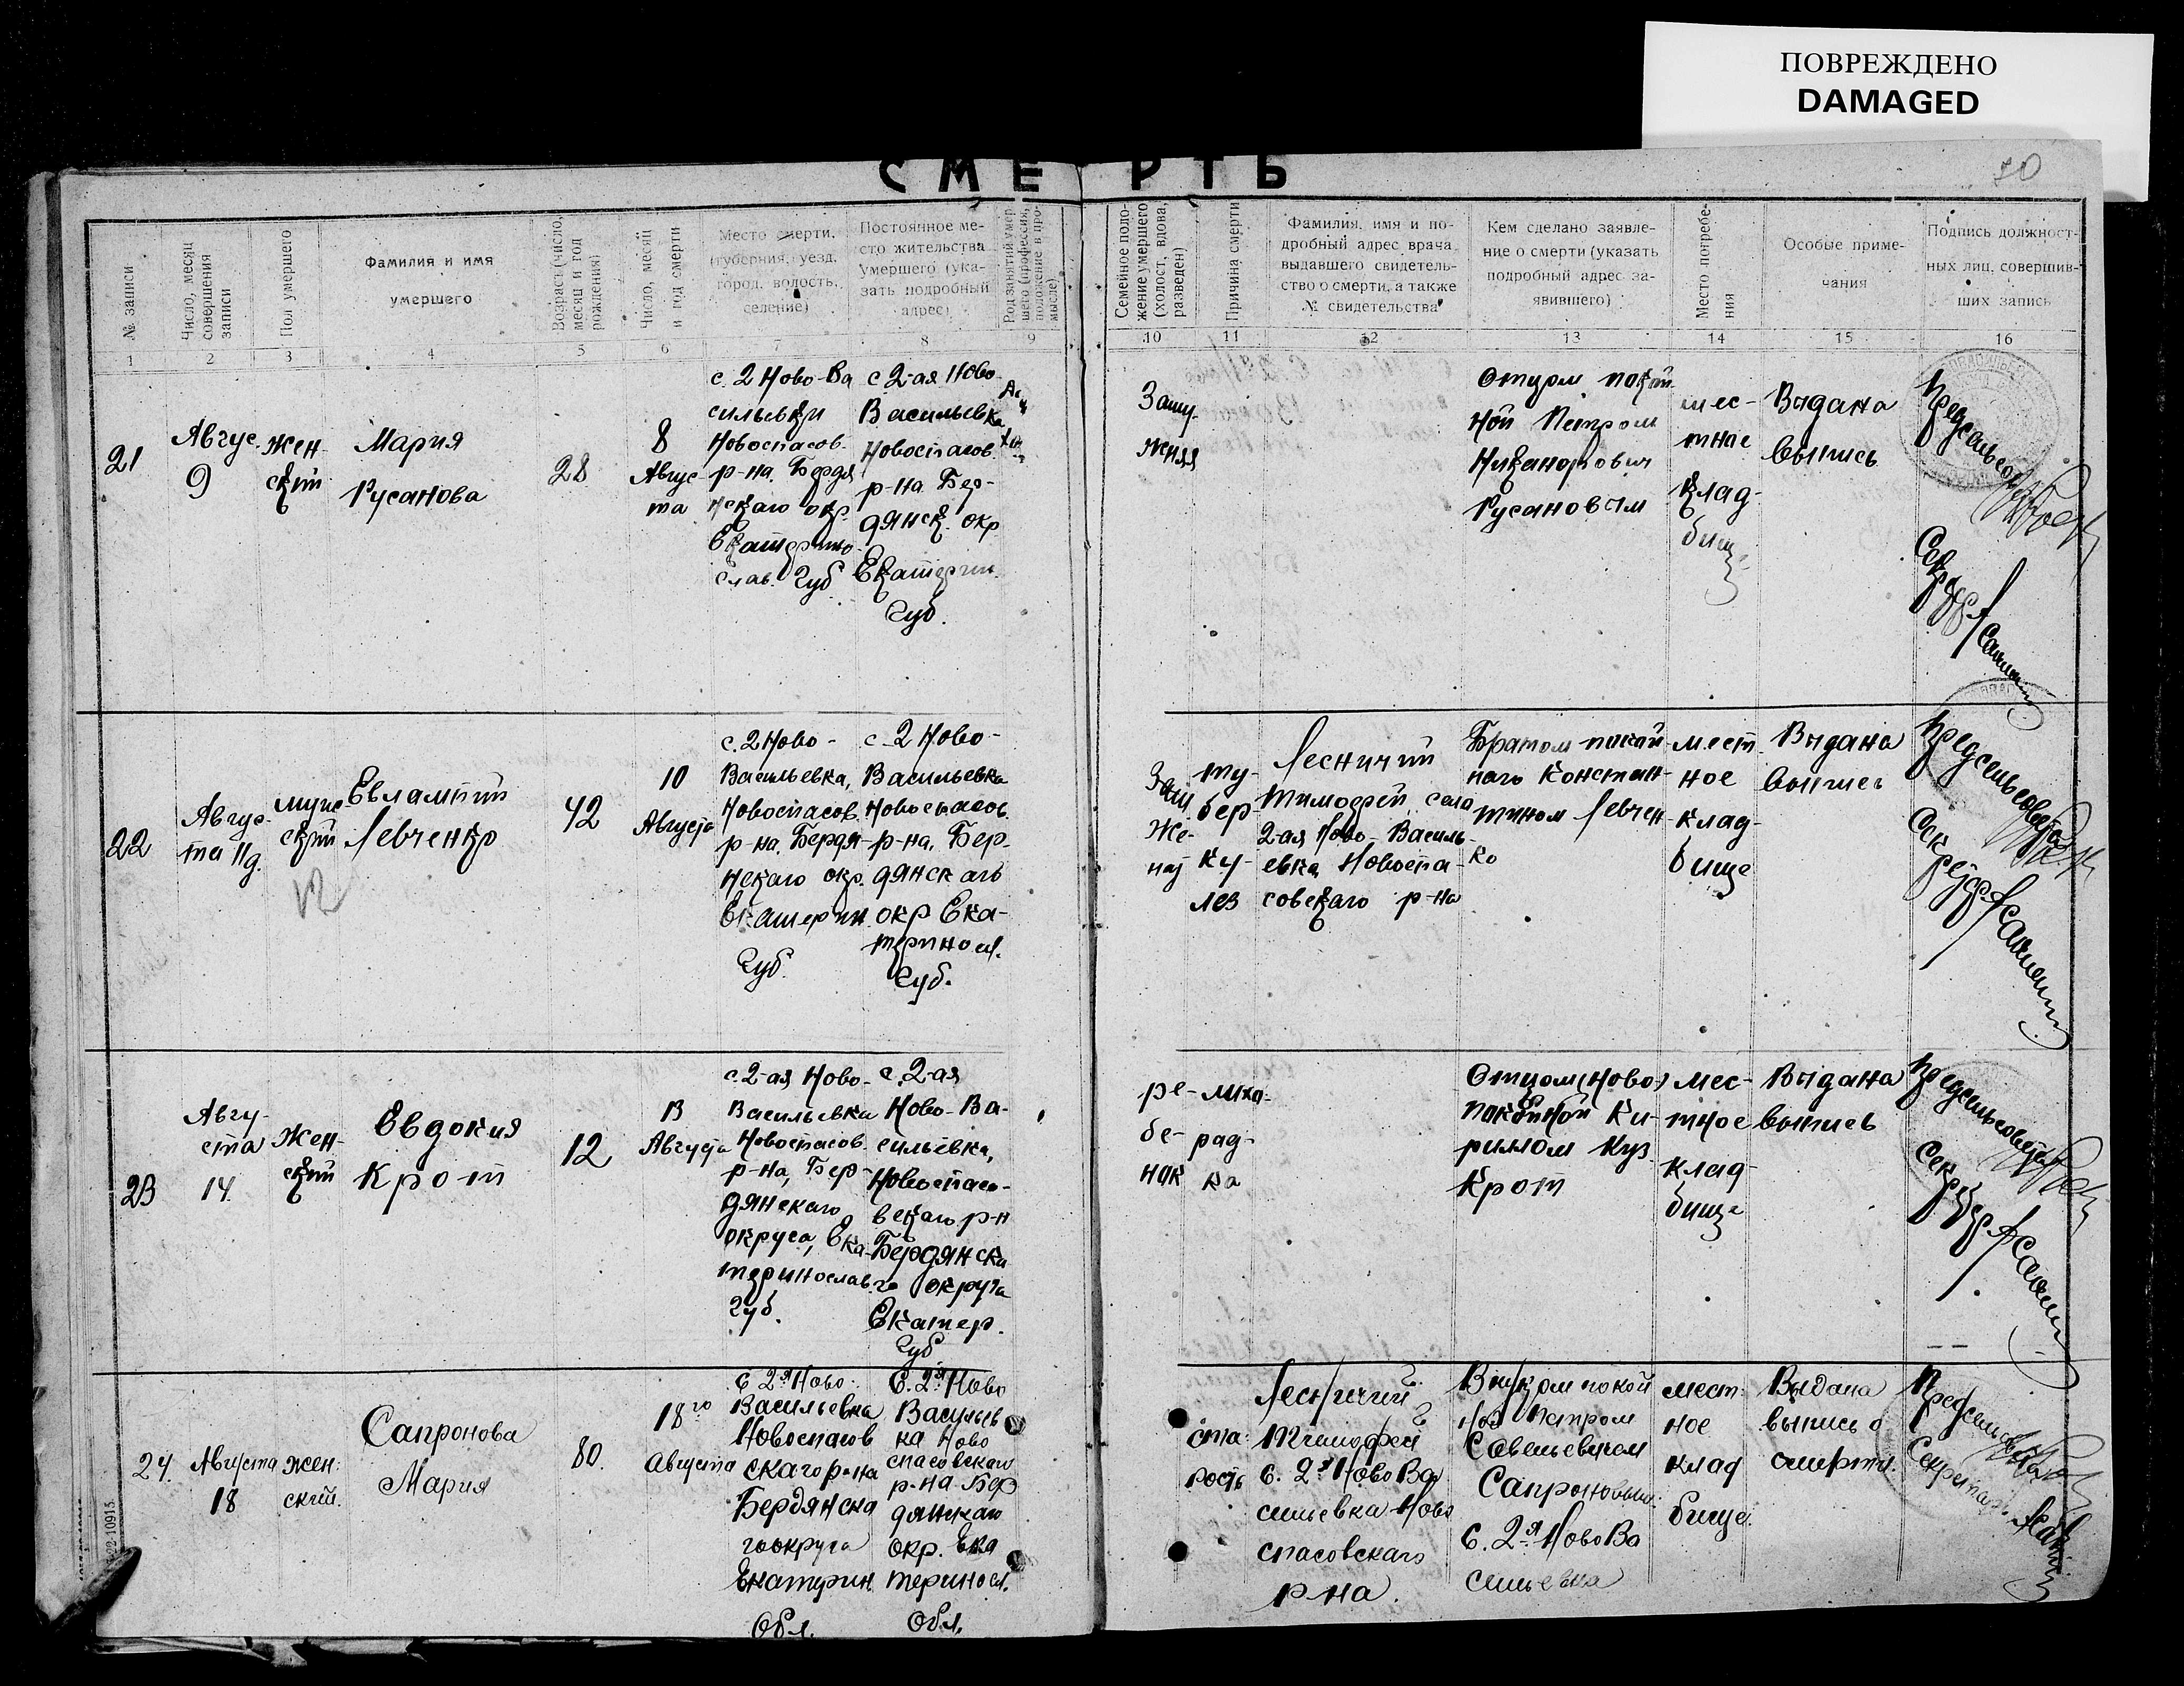 ПОВРЕЖДЕНО
DAMAGED
СМЕРТЬ
№ записи
Число, месяц
совершения
записи
Пол умершего
Фамилия и имя
умершего
Возраст (число,
месяц и год
рождения)
Число, месяц
и год смерти
Место смерти.
(губерния, уезд,
город, волость,
селение)
Постоянное ме-
сто жительства
умершего (ука-
зать подробный
адрес)
Род занятий умер-
шего (профессия,
положение в про-
мысле)
Семейное поло-
жение умершего
(холост, вдова,
разведен)
Причина смерти
Фамилия, имя и по-
дробный адрес врача,
выдавшего свидетель-
ство о смерти, а также
№ свидетельства
Кем сделано заявле-
ние о смерти (указать
подробный адрес за-
явившего)
Место погребе-
ния
Особые приме-
чания
Подпись должност-
ных лиц, совершив-
ших запись
1
2
3
4
5
6
7
8
9
10
11
12
13
14
15
16
21
Авгус.
9
жен-
ский
Мария
Русанова
28
8
Авгус-
та
с. 2 Ново-Ва
сильевки
Новоспасов.
р-на. Бердя
нскаго окр.
Екатерино-
слав. Губ
с 2-ая Ново-
Васильевка
Новоспасов.
р-на Бер-
дянск. окр
Екатерин.
Губ.
Заму-
жняя
Отцом покой
ной Петром
Никанорович
Русановым
мес-
тное
клад-
бище
Выдана
выпись
Предсельсов
22
Авгус-
та 11 д.
муж-
ский
12
Евлампий
Левченко
42
10
Августа
с. 2 Ново-
Васильевка,
Новоспасов.
р-на. Бердя-
нскаго окр.
Екатерин
Губ.
с. 2 Ново-
Васильевка
Новоспасов.
р-на, Бер-
дянскаго
окр Ека-
териносл.
Губ.
ту-
бер-
ку-
лез
Лесничий
Тимофей села
2-ая Ново-Василь-
евка Новоспа-
совскаго р-на
Братом покой
наго Констан-
тином Левчен-
ко
мест
ное
клад-
бище
Выдана
выпись
Предсельсовета
23
Авгу-
ста
14
Жен-
ский
Евдокия
Крот
12
13
Августа
с. 2-ая Ново-
Васильевка
Новоспасов.
р-на, Бер-
дянскаго
округа, Ека-
теринослав.
Губ.
с. 2-ая
Ново-Ва-
сильевка,
Новоспасо-
вскаго р-н
Бердянска
го округа
Екатер.
Губ
ре-
бе-
нок
лихо-
рад-
ка
Отцом (Ново)
покойной Ки-
риллом Куз.
Крот
мес-
тное
клад-
бище
Выдана
выпись
Предсельсовета
24.
Августа
18
жен:
ский.
Сапронова
Мария
80.
18го
Августа
с 2я Ново-
Васильевка
Новоспасов
скаго р-на
Бердянска
го округа
Екатерин.
Обл.
с. 2я Ново
Васильев
ка Ново
спасовскаго
р-на Бер
дянскаго
окр. Ека
териносл.
Обл.
ста:
рость
Лесничий
Тимофей
с. 2я Ново Ва
сильевка Ново
спасовскаго
р-на.
Внуком покой
ной Петром
Савельевичем
Сапроновым:
с. 2я Ново Ва
сильевка
мест:
ное
клад
бище.
Выдана
выпись о
смерти.
Предсельсовета
Секретарь